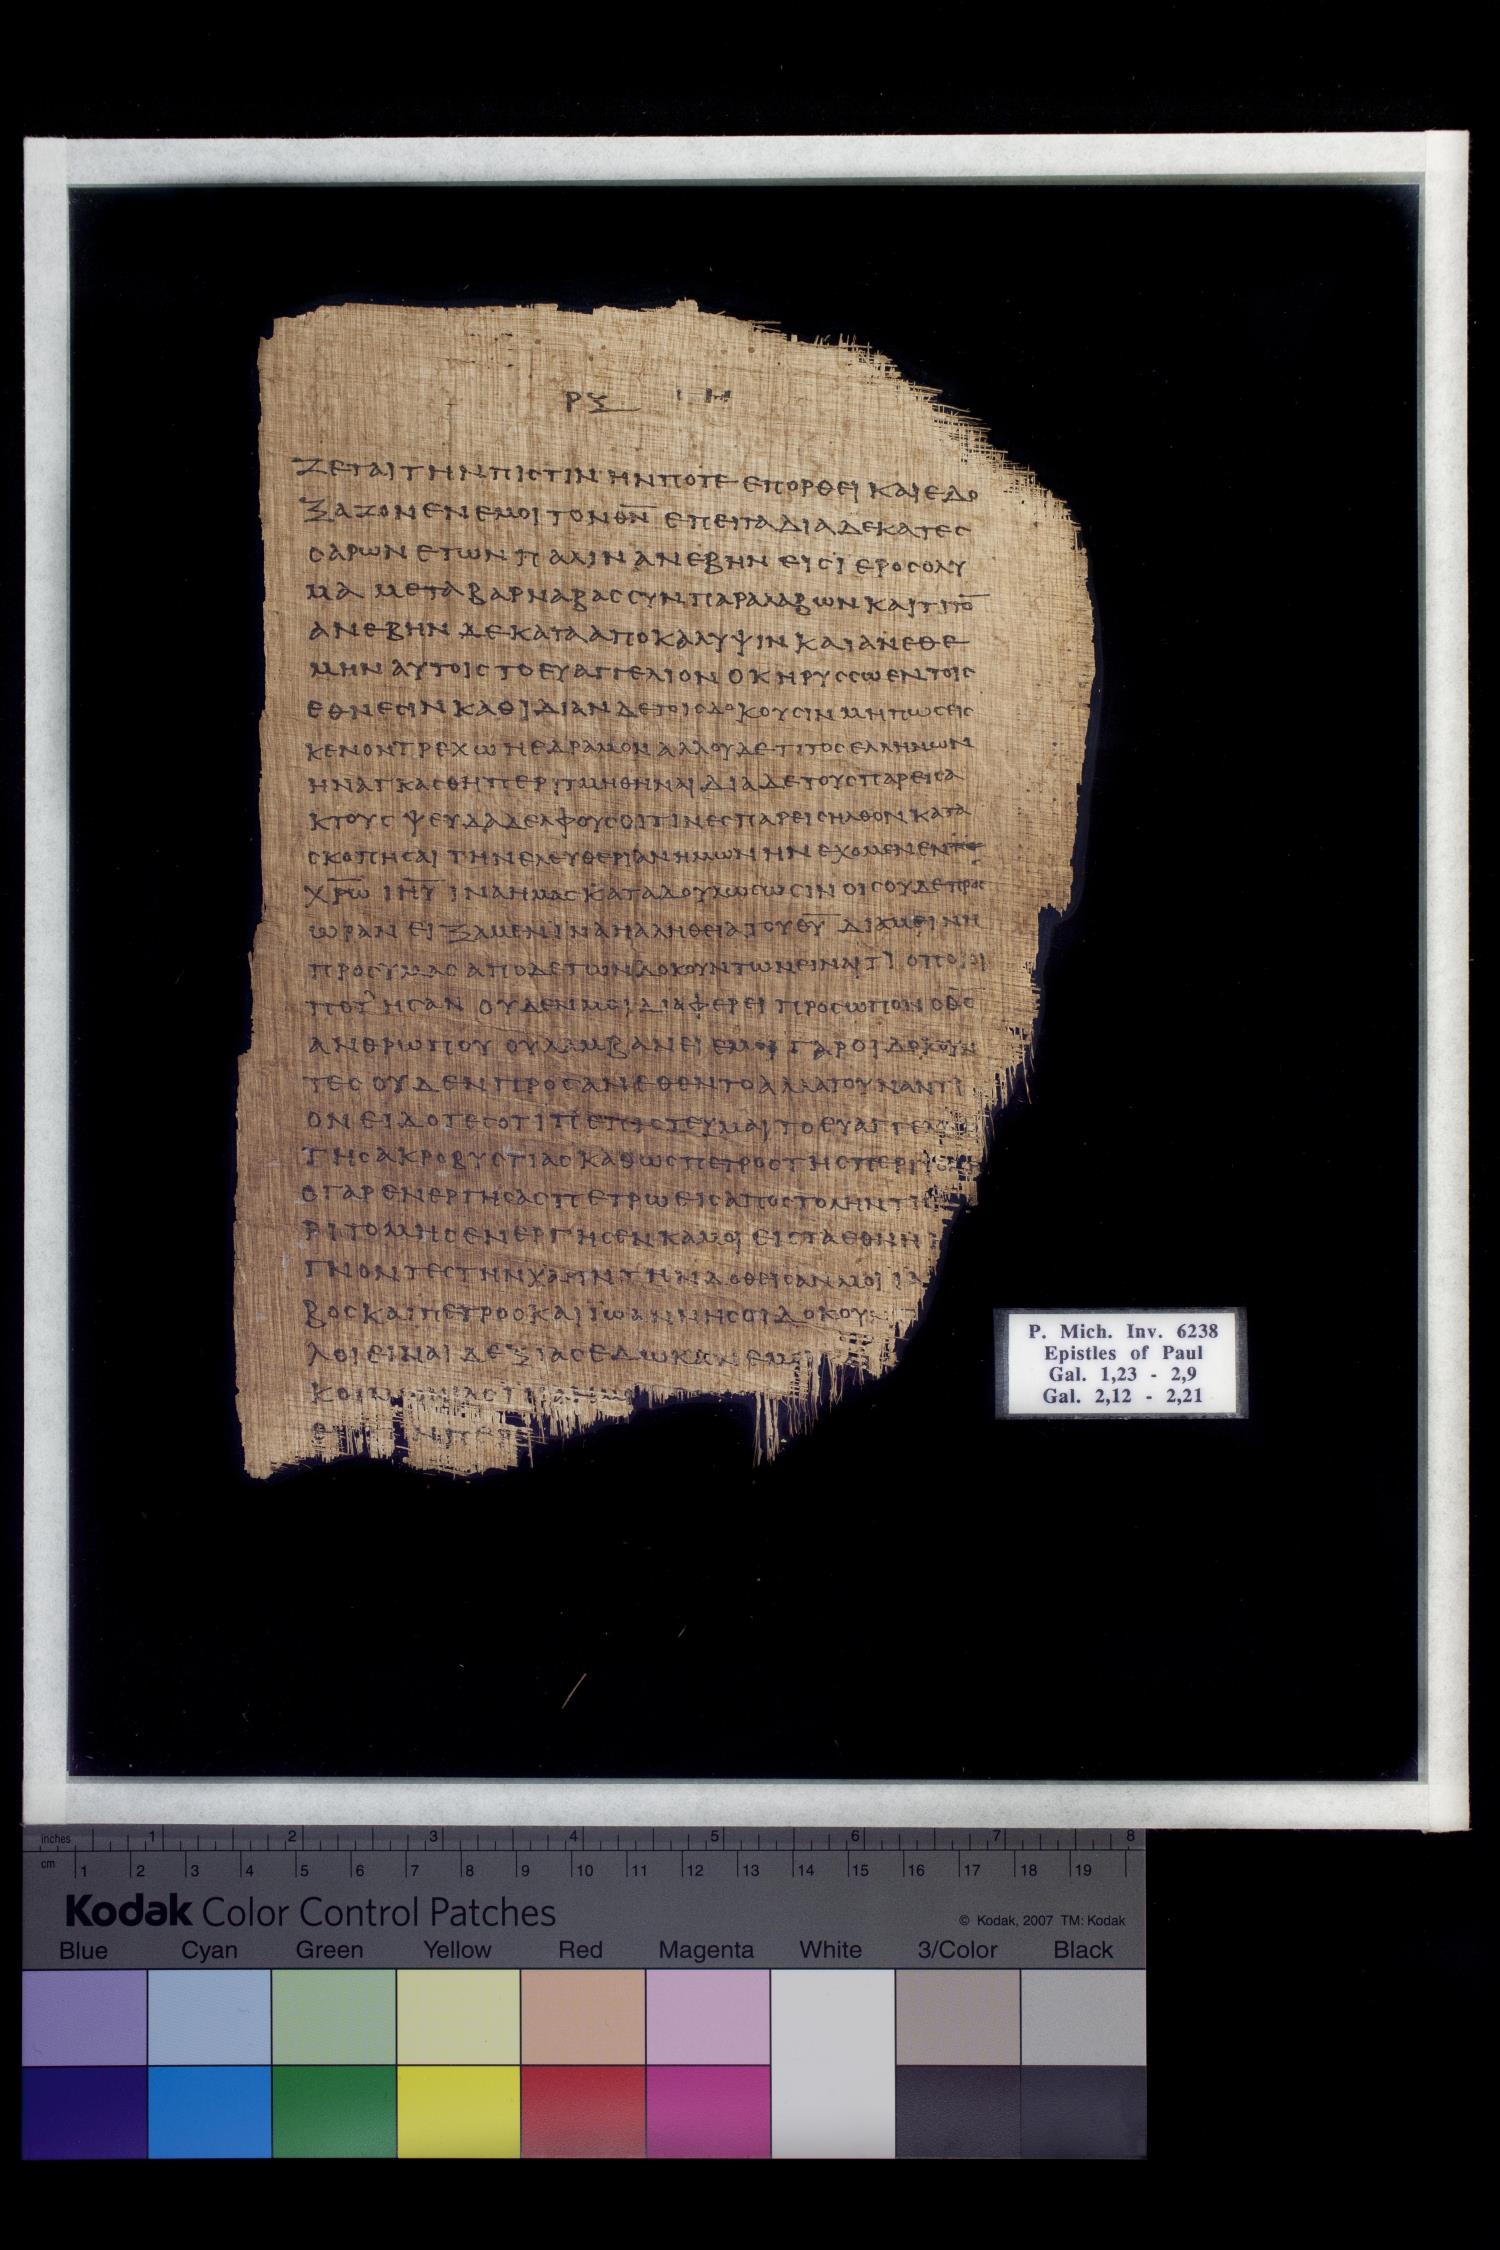 ΡΞ ΙΗ
ΖΕΤΑΙ ΤΗΝ ΠΙΣΤΙΝ ΗΝ ΠΟΤΕ ΕΠΟΡΘΕΙ ΚΑΙ ΕΔΟ
ΞΑΖΟΝ ΕΝ ΕΜΟΙ ΤΟΝ Θ̅Ν̅ ΕΠΕΙΤΑ ΔΙΑ ΔΕΚΑΤΕΣ
ΣΑΡΩΝ ΕΤΩΝ ΠΑΛΙΝ ΑΝΕΒΗΝ ΕΙΣ ΙΕΡΟΣΟΛΥ
ΜΑ ΜΕΤΑ ΒΑΡΝΑΒΑΣ ΣΥΝΠΑΡΑΛΑΒΩΝ ΚΑΙ ΤΙΤΟ̅
ΑΝΕΒΗΝ ΔΕ ΚΑΤΑ ΑΠΟΚΑΛΥΨΙΝ ΚΑΙ ΑΝΕΘΕ
ΜΗΝ ΑΥΤΟΙΣ ΤΟ ΕΥΑΓΓΕΛΙΟΝ Ο ΚΗΡΥΣΣΩ ΕΝ ΤΟΙΣ
ΕΘΝΕΣΙΝ ΚΑΘ ΙΔΙΑΝ ΔΕ ΤΟΙΣ ΔΟΚΟΥΣΙΝ ΜΗ ΠΩΣ ΕΙΣ
ΚΕΝΟΝ ΤΡΕΧΩ Η ΕΔΡΑΜΟΝ ΑΛΛ ΟΥΔΕ ΤΙΤΟΣ ΕΛΛΗΝ ΩΝ
ΗΝΑΓΚΑΣΘΗ ΠΕΡΙΤΜΗΘΗΝΑΙ ΔΙΑ ΔΕ ΤΟΥΣ ΠΑΡΕΙΣΑ
ΚΤΟΥΣ ΨΕΥΔΑΔΕΛΦΟΥΣ ΟΙΤΙΝΕΣ ΠΑΡΕΙΣΗΛΘΟΝ ΚΑΤΑ
ΣΚΟΠΗΣΑΙ ΤΗΝ ΕΛΕΥΘΕΡΙΑΝ ΗΜΩΝ ΗΝ ΕΧΟΜΕΝ ΕΝ
Χ̅Ρ̅Ω̅ Ι̅Η̅Υ̅ ΙΝΑ ΗΜΑΣ ΚΑΤΑΔΟΥΛΩΣΩΣΙΝ ΟΙΣ ΟΥΔΕ ΠΡΟΣ
ΩΡΑΝ ΕΙΞΑΜΕΝ ΙΝΑ Η ΑΛΗΘΕΙΑ ΤΟΥ Θ̅Υ̅ ΔΙΑΜΕΙΝΗ
ΠΡΟΣ ΥΜΑΣ ΑΠΟ ΔΕ ΤΩΝ ΔΟΚΟΥΝΤΩΝ ΕΙΝΑΙ ΤΙ ΟΠΟΙΟΙ
ΠΟΤ ΗΣΑΝ ΟΥΔΕΝ ΜΟΙ ΔΙΑΦΕΡΕΙ ΠΡΟΣΩΠΟΝ Ο Θ̅Σ̅
ΑΝΘΡΩΠΟΥ ΟΥ ΛΑΜΒΑΝΕΙ ΕΜΟΙ ΓΑΡ ΟΙ ΔΟΚΟΥΝ
ΤΕΣ ΟΥΔΕΝ ΠΡΟΣΑΝΕΘΕΝΤΟ ΑΛΛΑ ΤΟΥΝΑΝΤΙ
ΟΝ ΕΙΔΟΤΕΣ ΟΤΙ ΠΕΠΙΣΤΕΥΜΑΙ ΤΟ ΕΥΑΓΓΕΛΙΟΝ
ΤΗΣ ΑΚΡΟΒΥΣΤΙΑΣ ΚΑΘΩΣ ΠΕΤΡΟΣ ΤΗΣ ΠΕΡΙΤΟΜΗΣ
Ο ΓΑΡ ΕΝΕΡΓΗΣΑΣ ΠΕΤΡΩ ΕΙΣ ΑΠΟΣΤΟΛΗΝ ΤΗ
ΡΙΤΟΜΗΣ ΕΝΕΡΓΗΣΕΝ ΚΑΜΟΙ ΕΙΣ ΤΑ ΕΘΝΗ
ΓΝΟΝΤΕΣ ΤΗΝ ΧΑΡΙΝ ΤΗΝ ΔΟΘΕΙΣΑΝ ΜΟΙ ΙΑ
ΒΟΣ ΚΑΙ ΠΕΤΡΟΣ ΚΑΙ ΙΩΑΝΝΗΣ ΟΙ ΔΟΚΟΥΝ
ΛΟΙ ΕΙΝΑΙ ΔΕΞΙΑΣ ΕΔΩΚΑΝ ΕΜΟΙ
ΚΟΙΝΩΝΙΑΣ ΙΝΑ ΗΜ
P. Mich. Inv. 6238
Epistles of Paul
Gal. 1,23 - 2,9
Gal. 2,12 - 2,21
inches 1 2 3 4 5 6 7 8
cm 1 2 3 4 5 6 7 8 9 10 11 12 13 14 15 16 17 18 19
Kodak Color Control Patches
© Kodak, 2007 TM: Kodak
Blue Cyan Green Yellow Red Magenta White 3/Color Black